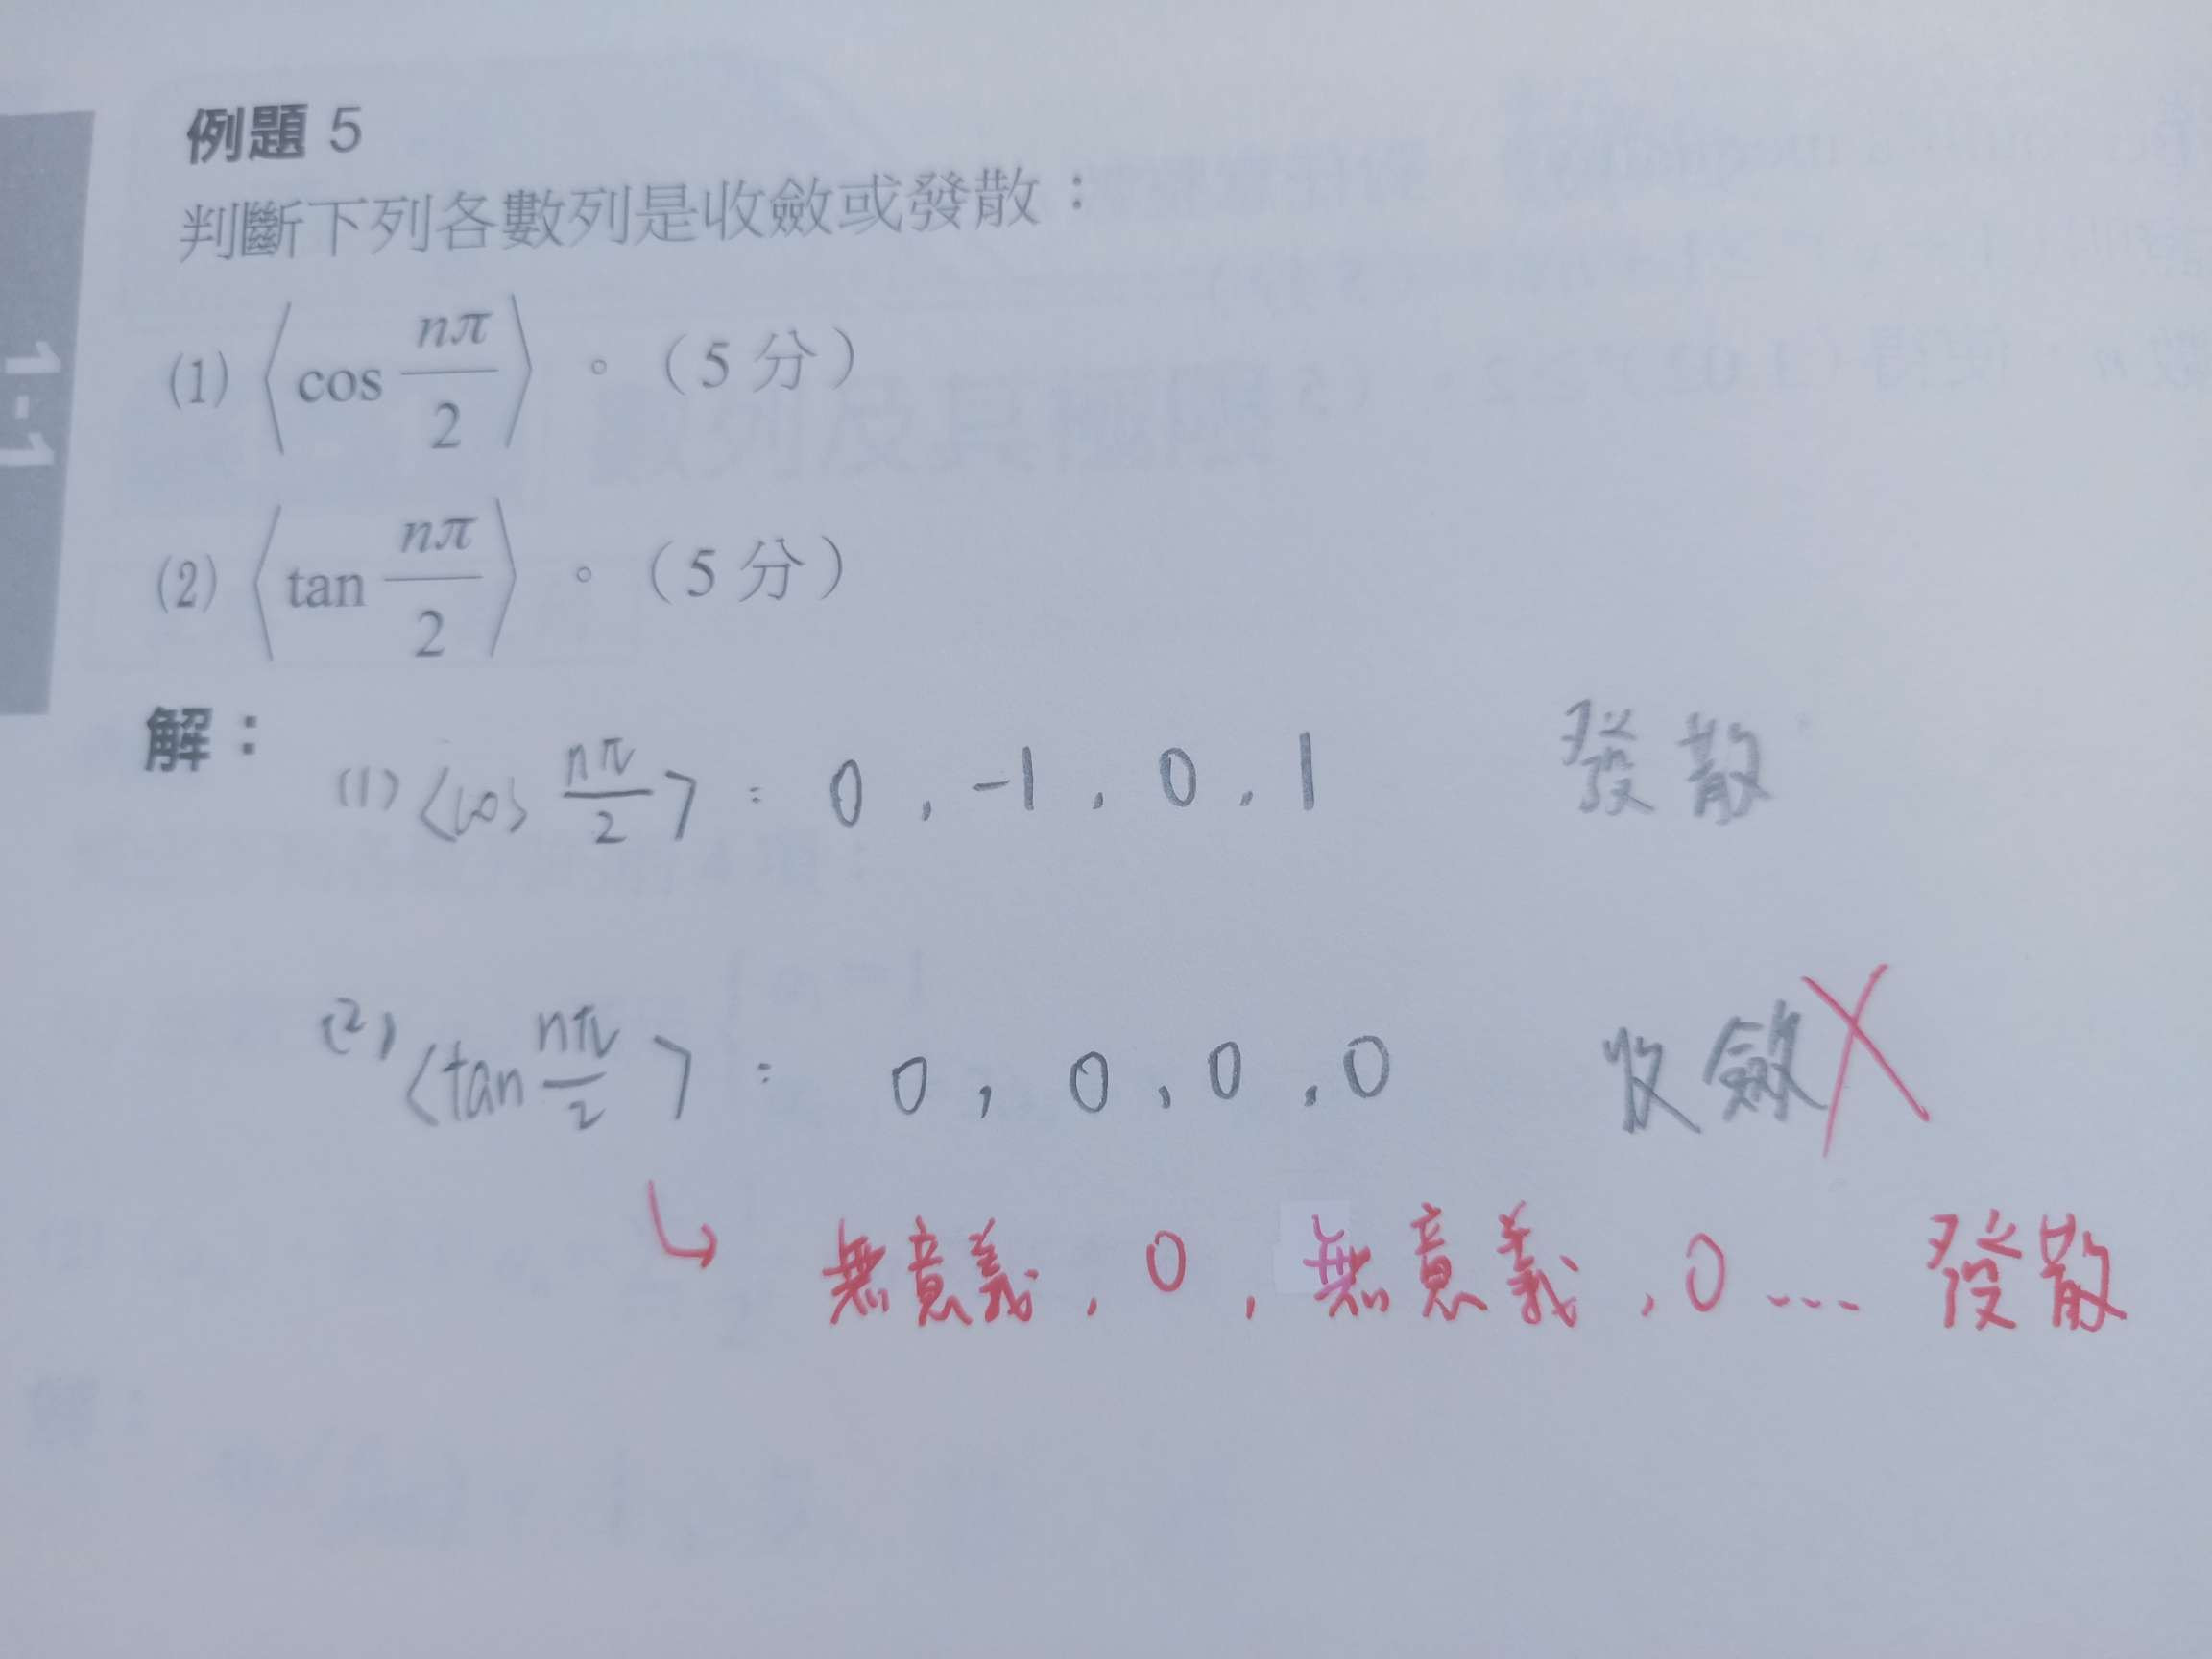 例題 5
判斷下列各數列是收斂或發散：
(1) ⟨cos nπ/2⟩。（5 分）
(2) ⟨tan nπ/2⟩。（5 分）
解：
(1) ⟨cos nπ/2⟩ : 0 , -1 , 0 , 1 發散
(2) ⟨tan nπ/2⟩ : 0 , 0 , 0 , 0 收斂 X
↳ 無意義 , 0 , 無意義 , 0 .... 發散
1-1